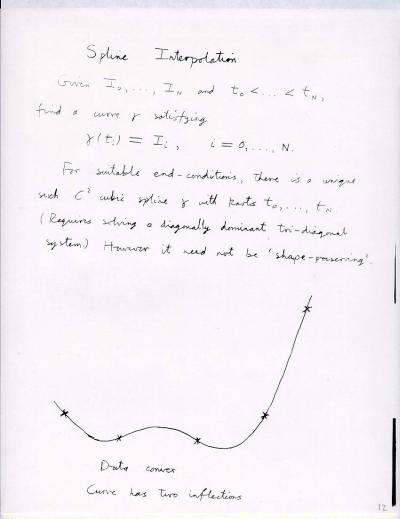 Spline Interpolation
Given I₀, ..., I_N and t₀ < ... < t_N,
find a curve γ satisfying
γ(tᵢ) = Iᵢ, i = 0, ..., N.
For suitable end-conditions, there is a unique
such C² cubic spline γ with knots t₀, ..., t_N.
(Requires solving a diagonally dominant, tri-diagonal
system.) However it need not be 'shape-preserving'.
Data convex
Curve has two inflections
12